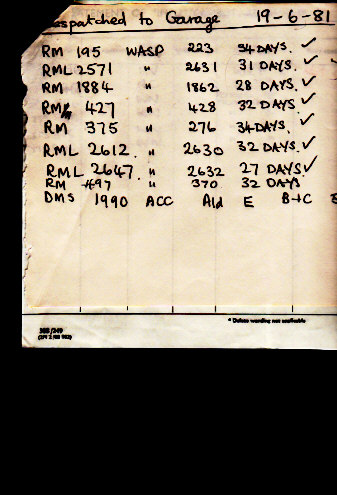 espatched to Garage 19-6-81
RM 195 WASP 223 34 DAYS. ✓
RML 2571 " 2631 31 DAYS. ✓
RM 1884 " 1862 28 DAYS. ✓
RM 427 " 428 32 DAYS ✓
RM 375 " 276 34 DAYS. ✓
RML 2612 " 2630 32 DAYS. ✓
RML 2647. " 2632 27 DAYS ✓
RM 497 " 370 32 DAYS
DMS 1990 ACC Ald E B+C
* Delete wording not applicable